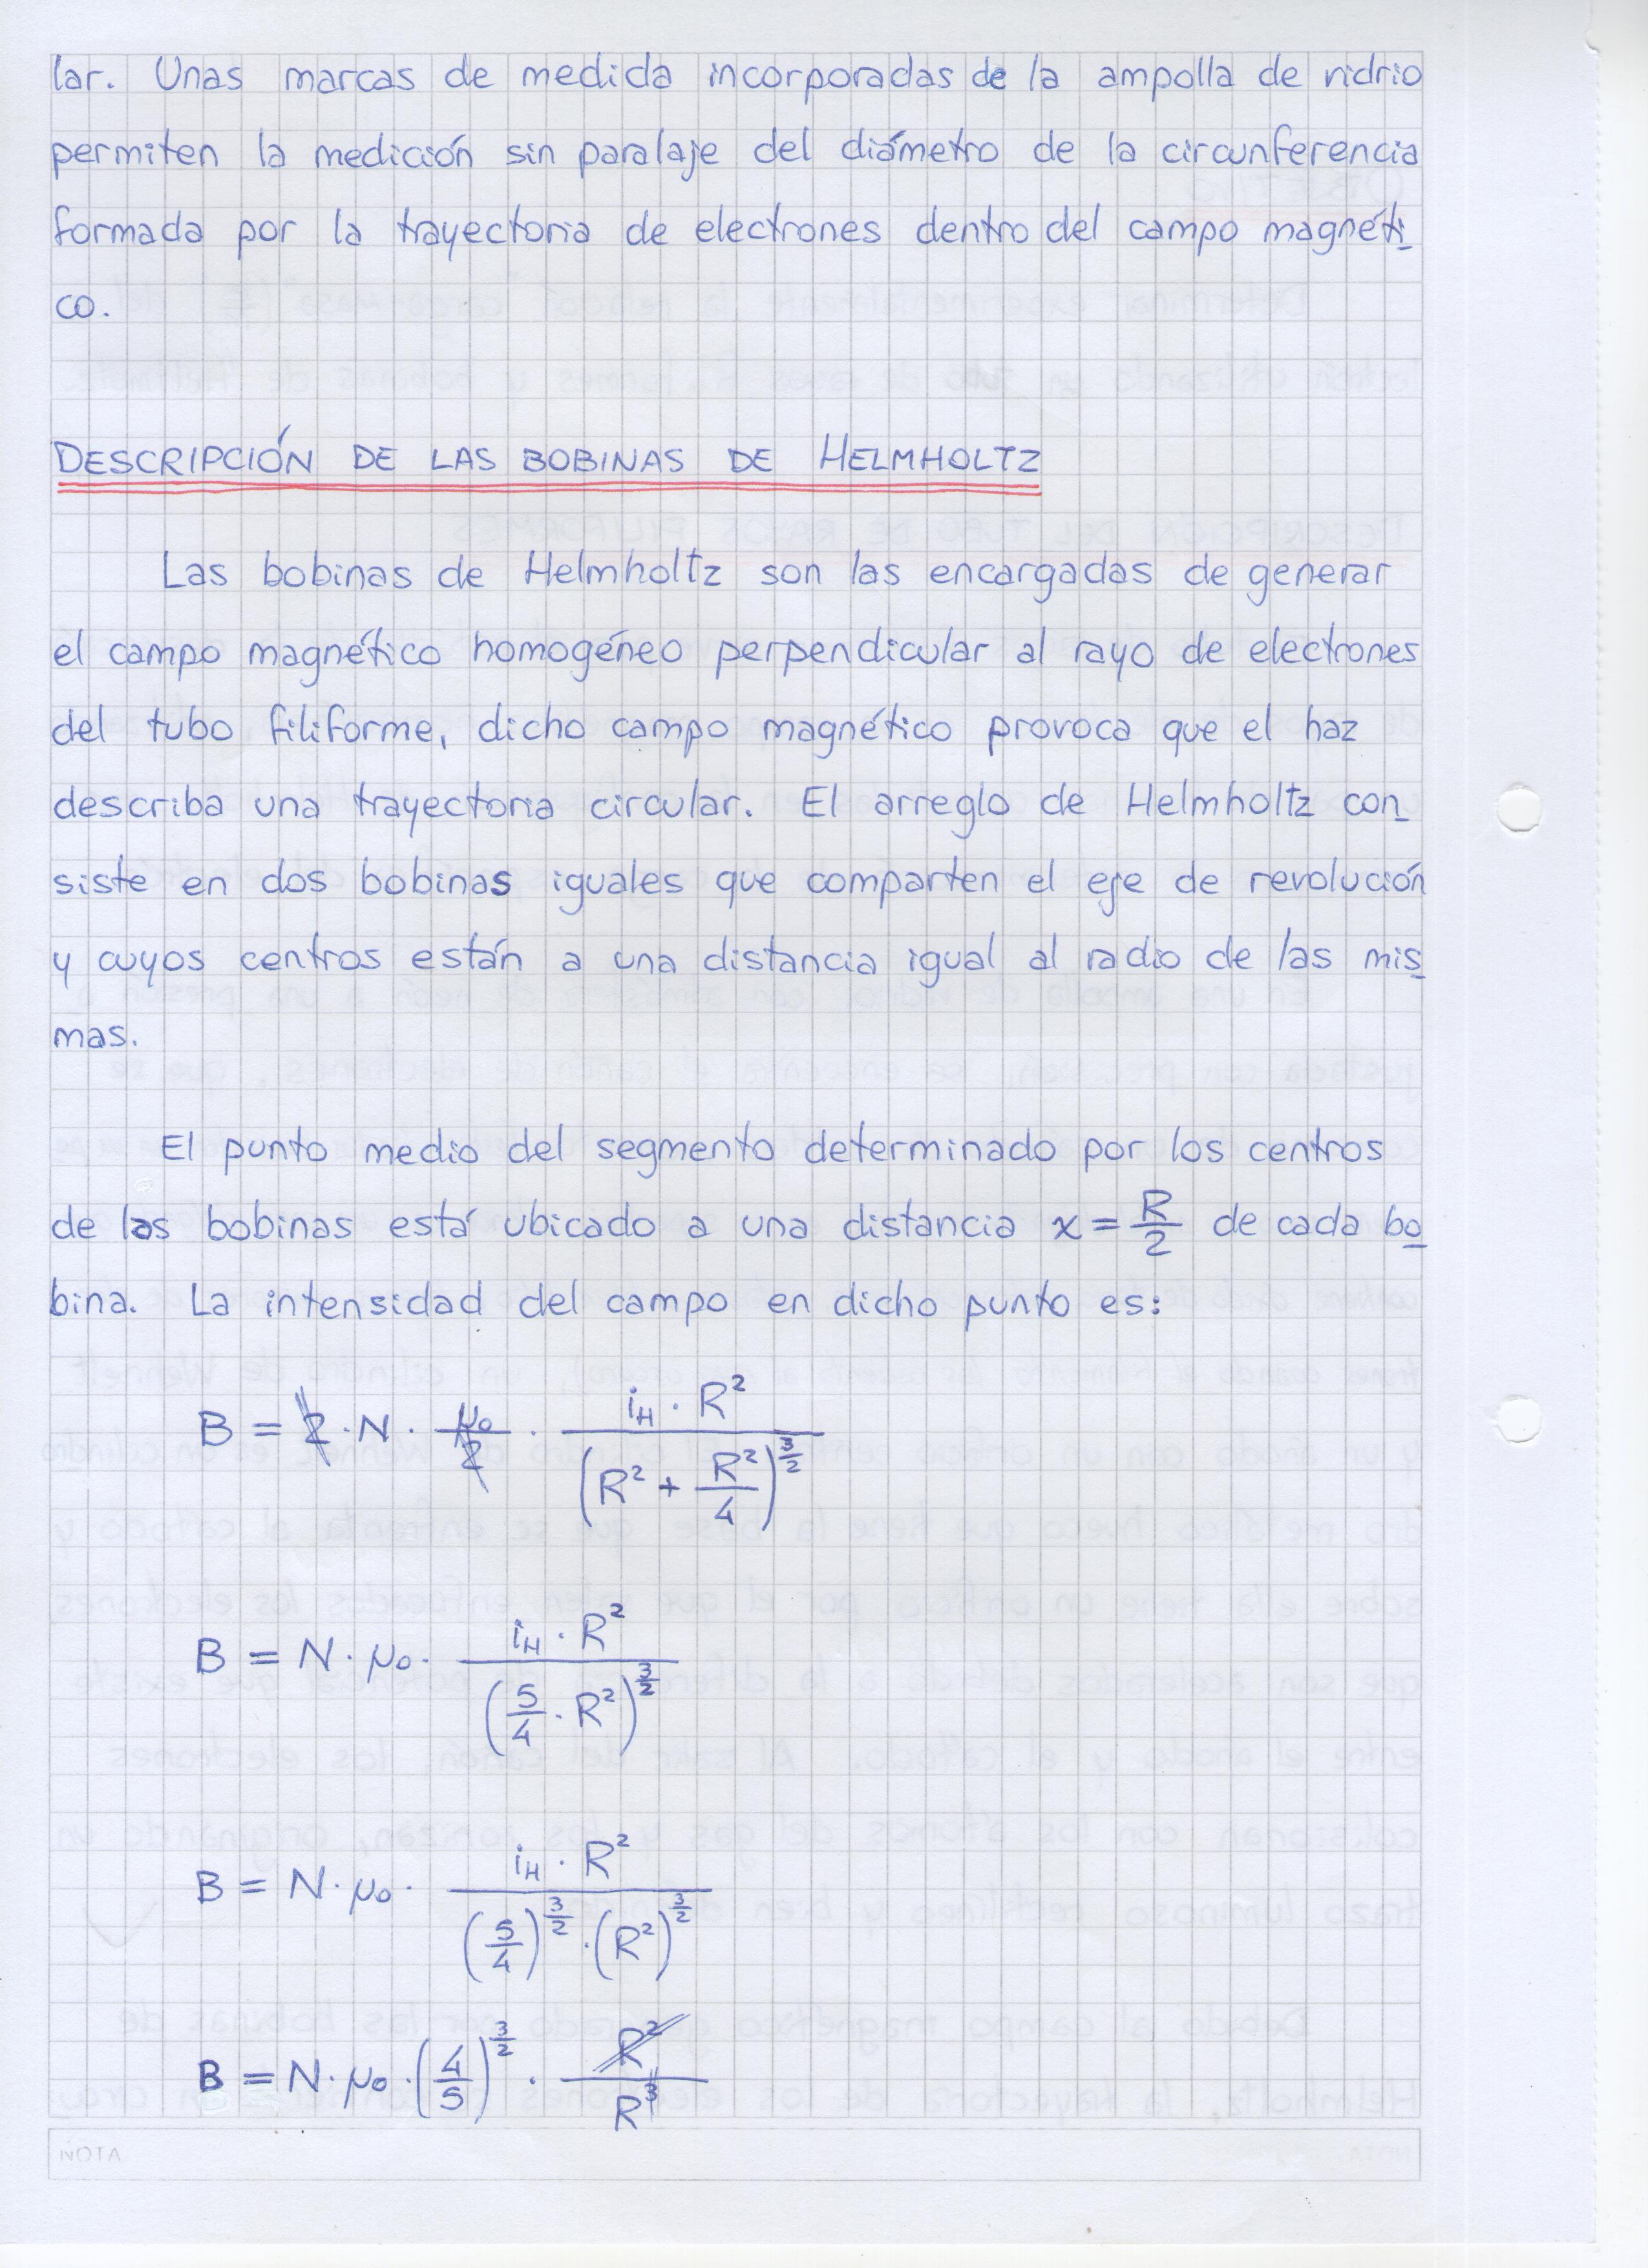 lar. Unas marcas de medida incorporadas de la ampolla de vidrio
permiten la medición sin paralaje del diámetro de la circunferencia
formada por la trayectoria de electrones dentro del campo magnéti_
co.
DESCRIPCIÓN DE LAS BOBINAS DE HELMHOLTZ
Las bobinas de Helmholtz son las encargadas de generar
el campo magnético homogéneo perpendicular al rayo de electrones
del tubo filiforme, dicho campo magnético provoca que el haz
describa una trayectoria circular. El arreglo de Helmholtz con_
siste en dos bobinas iguales que comparten el eje de revolución
y cuyos centros están a una distancia igual al radio de las mis_
mas.
El punto medio del segmento determinado por los centros
de las bobinas está ubicado a una distancia x = R/2 de cada bo_
bina. La intensidad del campo en dicho punto es:
B = 2 · N · μ₀/2 · (i_H · R²)/(R² + R²/4)^(3/2)
B = N · μ₀ · (i_H · R²)/(5/4 · R²)^(3/2)
B = N · μ₀ · (i_H · R²)/((5/4)^(3/2) · (R²)^(3/2))
B = N · μ₀ · (4/5)^(3/2) · R²/R³
NOTA